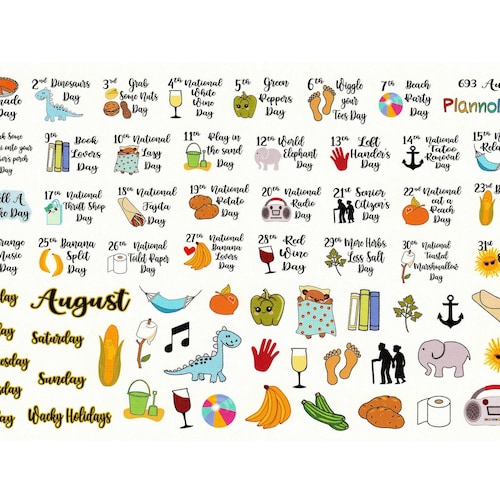 2nd Dinosaurs Day
3rd Grab Some Nuts Day
4th National White Wine Day
5th Green Peppers Day
6th Wiggle your Toes Day
7th Beach Party Day
693 Au
Planno
made Day
9th Book Lovers Day
10th National Lazy Day
11th Play in the sand Day
12th World Elephant Day
13th Left Hander's Day
14th National Tatoo Removal Day
15th
17th National Thrift Shop Day
18th National Fajita Day
19th National Potato Day
20th National Radio Day
21st Senior Citizen's Day
22nd National eat a Beach Day
23rd
25th Banana Split Day
26th National Toilet Paper Day
27th National Banana Lovers Day
28th Red Wine Day
29th More Herbs Less Salt Day
30th National Toasted Marshmallow Day
31st
August
Saturday
Sunday
Wacky Holidays